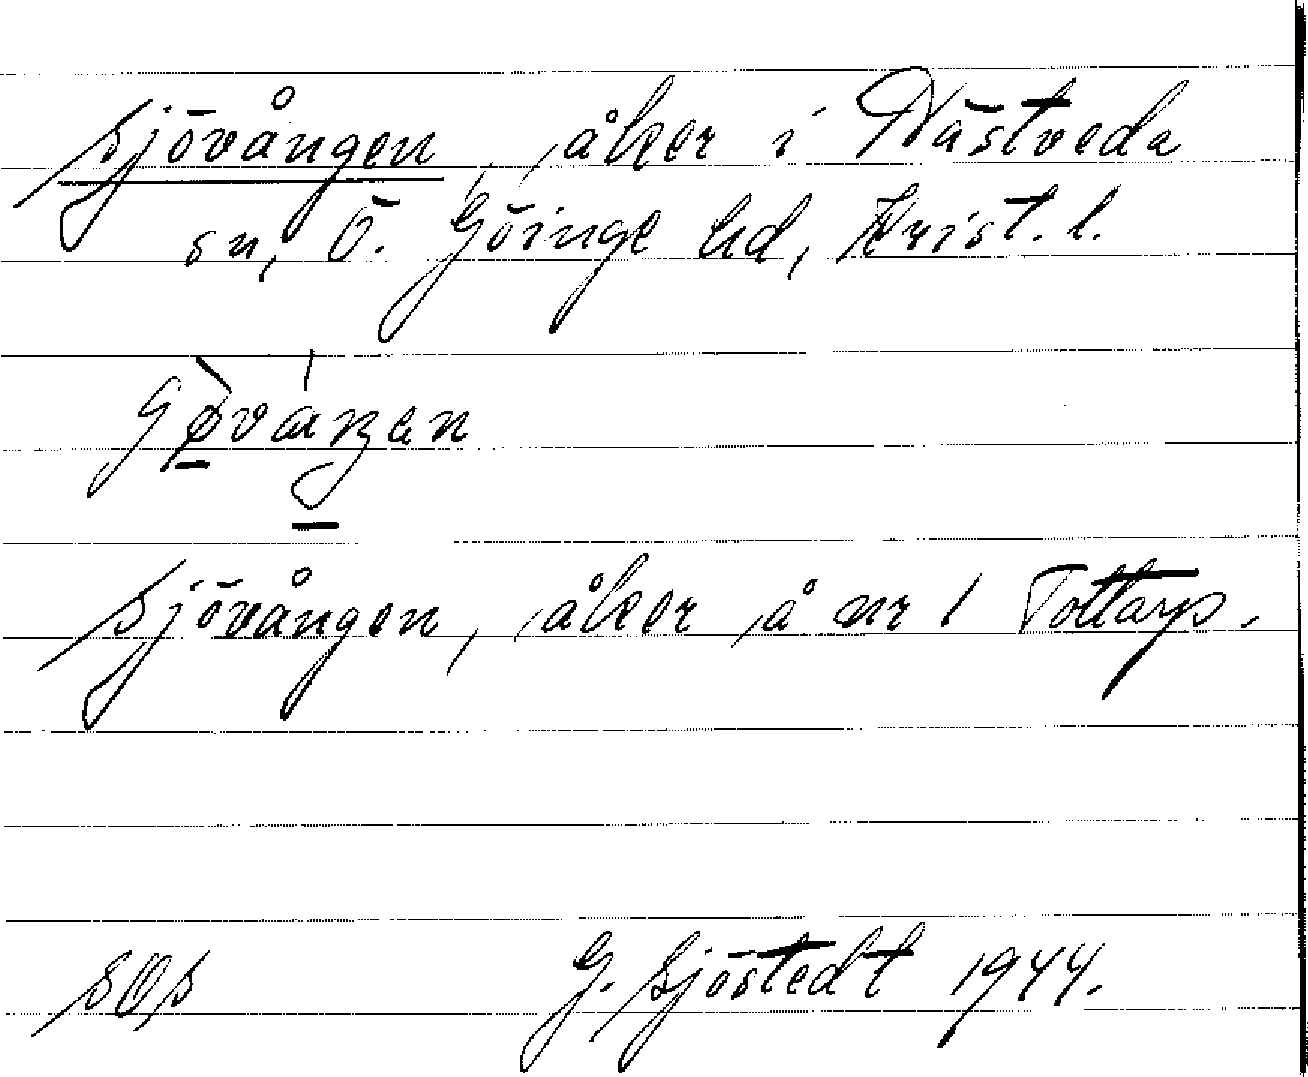 Sjövången, åker i Nästveda
sn, Ö. Göinge hd, Krist. l.
Sjövången, åker å nr 1 Tottarp.
SOs G. Sjöstedt 1944.